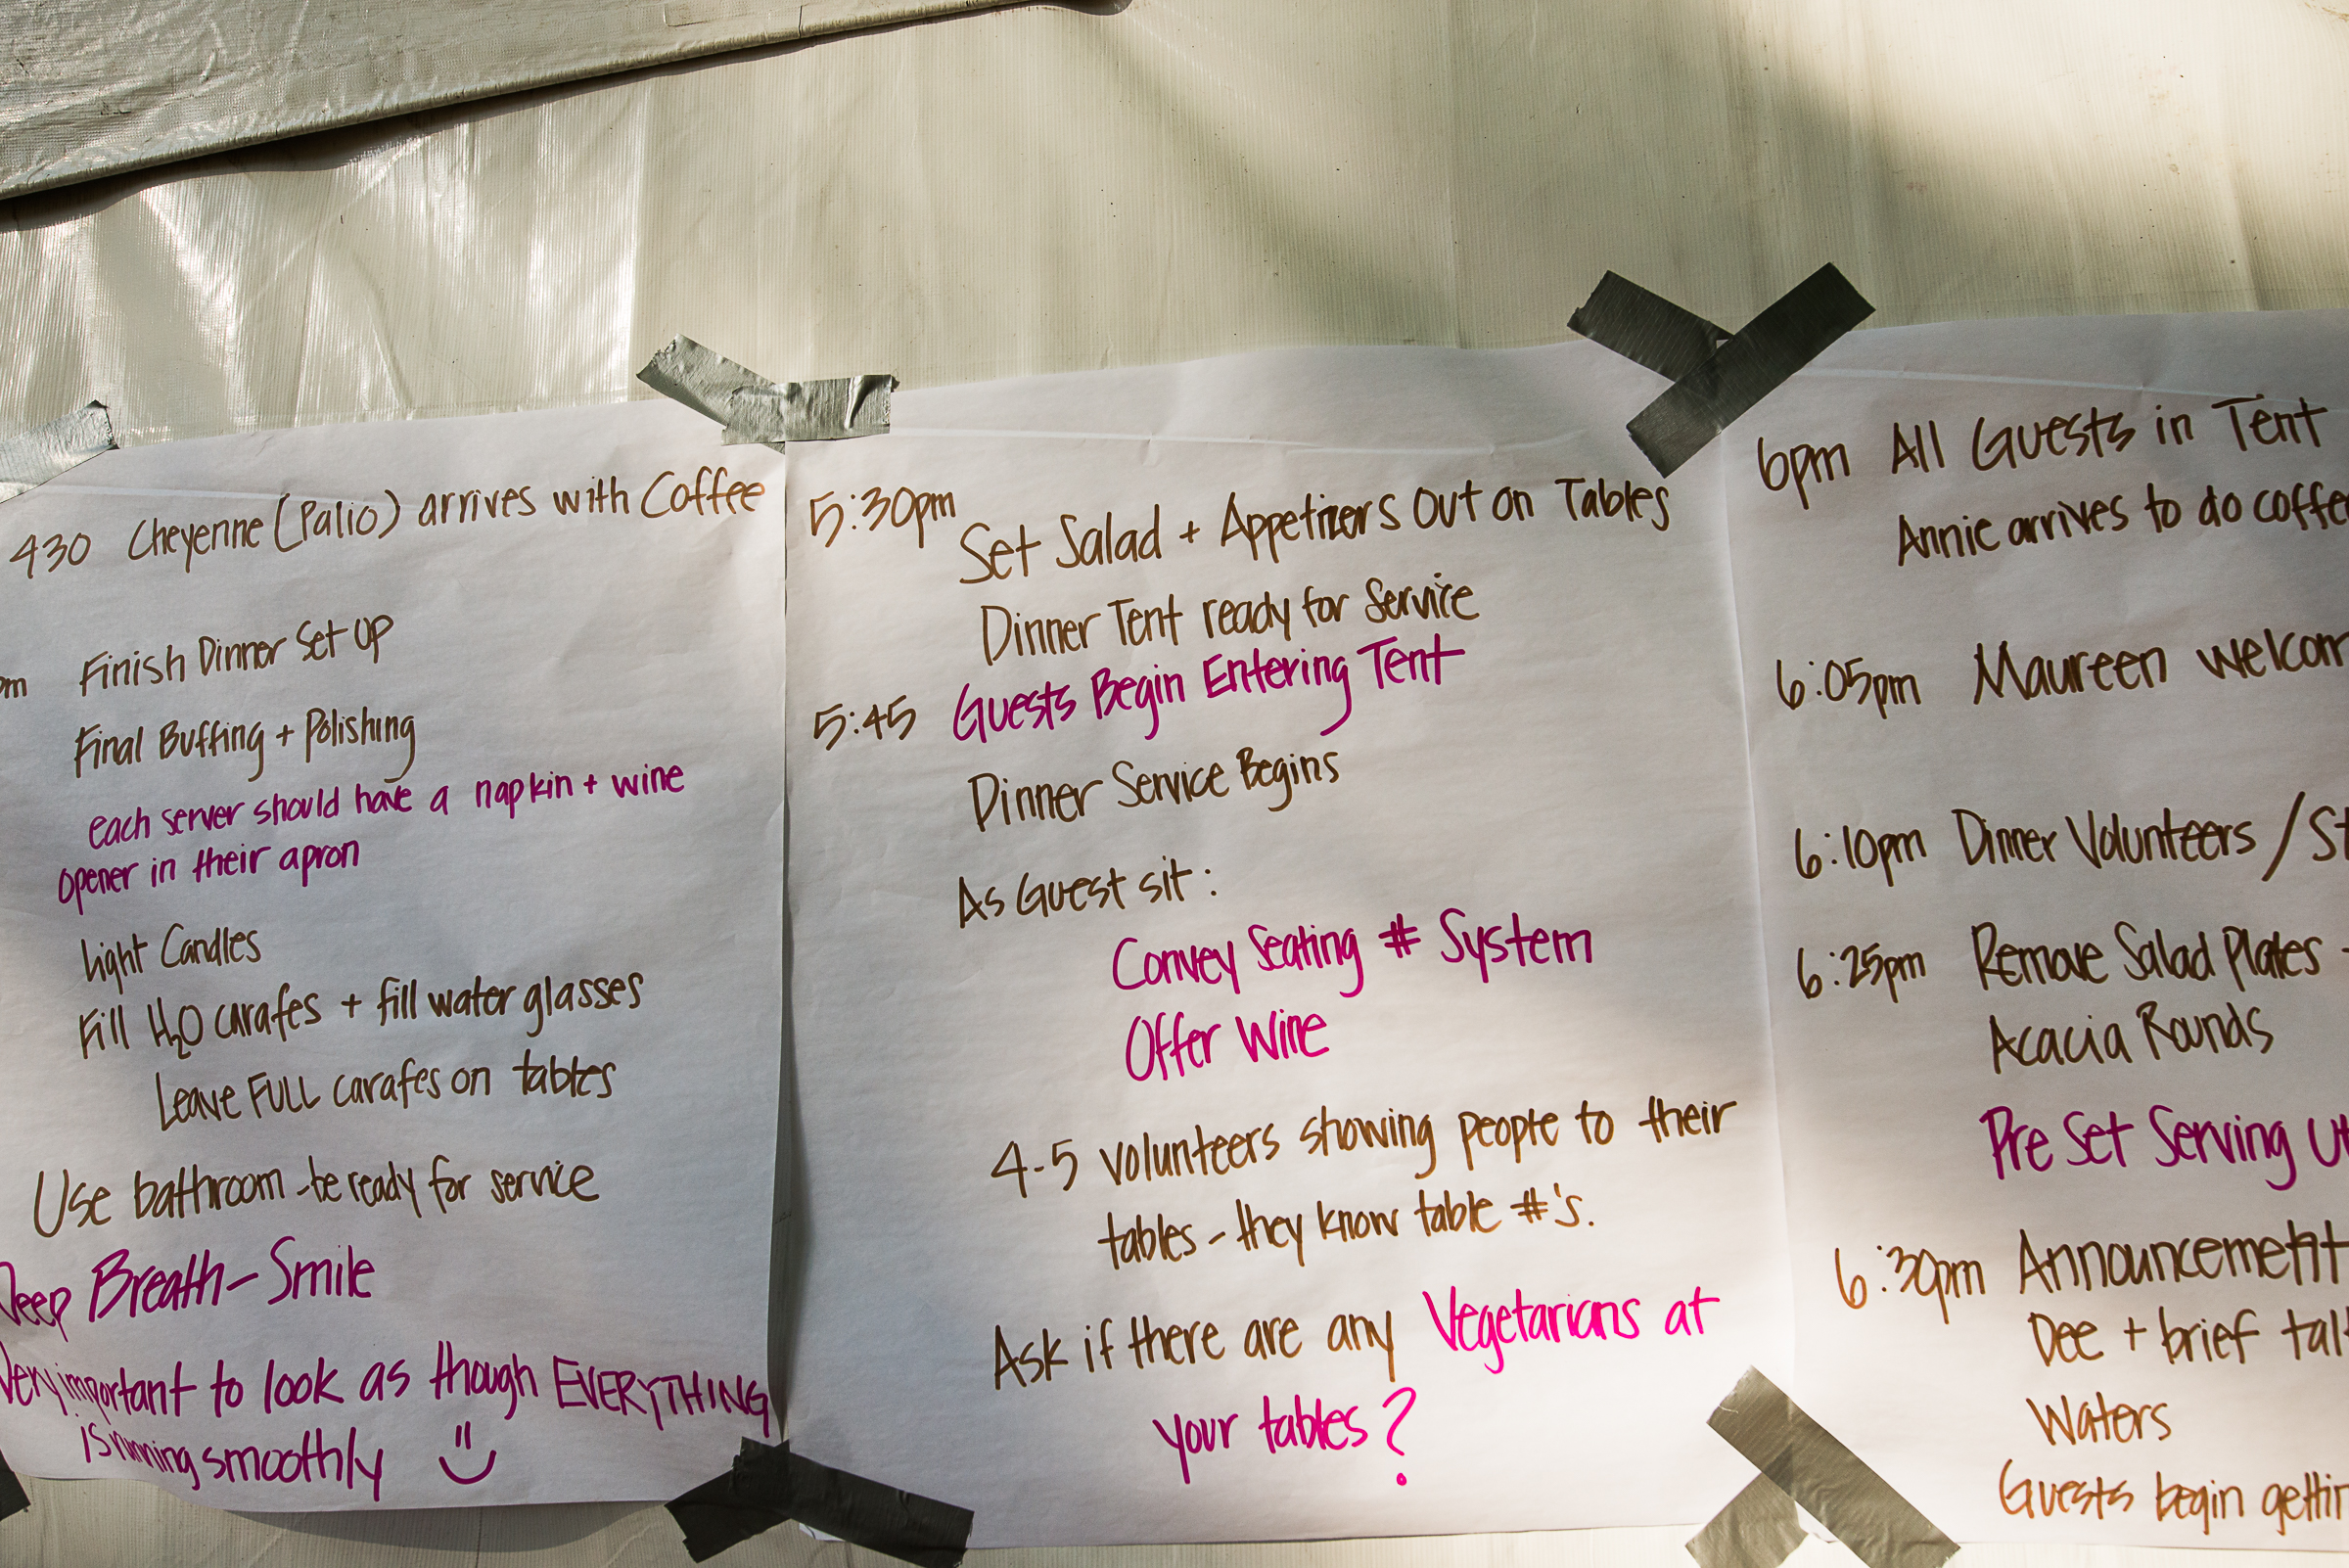 430 Cheyenne (Palio) arrives with Coffee
pm Finish Dinner Set Up
Final Buffing + Polishing
each server should have a napkin + wine
opener in their apron
Light Candles
Fill H2O carafes + fill water glasses
Leave FULL carafes on tables
Use bathroom - be ready for service
Deep Breath - Smile
Very important to look as though EVERYTHING
is running smoothly
5:30pm
Set Salad + Appetizers Out on Tables
Dinner Tent ready for Service
5:45 Guests Begin Entering Tent
Dinner Service Begins
As Guest sit :
Convey Seating # System
Offer Wine
4-5 volunteers showing people to their
tables - they know table #'s.
Ask if there are any Vegetarians at
your tables ?
6pm All Guests in Tent
Annie arrives to do coffee
6:05pm Maureen welcom
6:10pm Dinner Volunteers / St
6:25pm Remove Salad Plates
Acacia Rounds
Pre Set Serving Ut
6:30pm Announcement
Dee + brief tal
Waters
Guests begin gettin